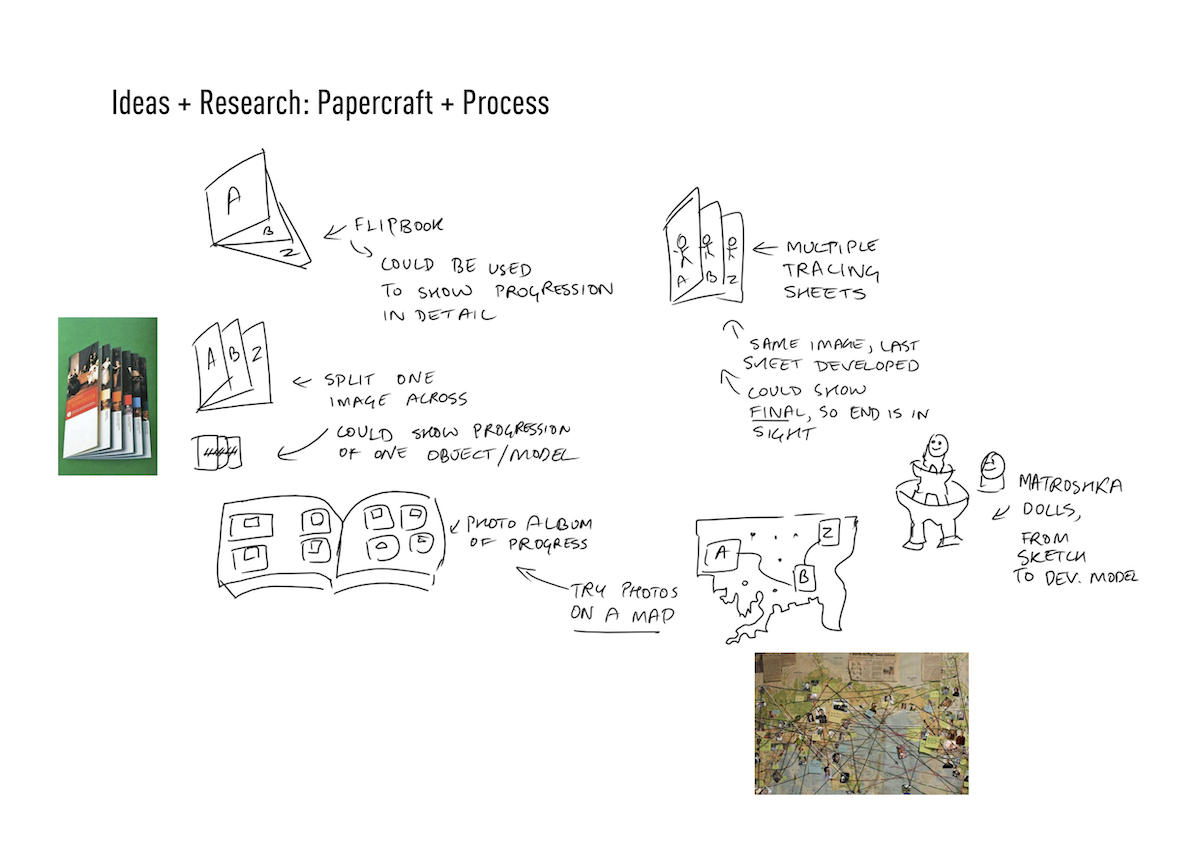 Ideas + Research: Papercraft + Process
A
B
Z
FLIPBOOK
COULD BE USED
TO SHOW PROGRESSION
IN DETAIL
A B Z
SPLIT ONE
IMAGE ACROSS
COULD SHOW PROGRESSION
OF ONE OBJECT/MODEL
PHOTO ALBUM
OF PROGRESS
TRY PHOTOS
ON A MAP
A B Z
MULTIPLE
TRACING
SHEETS
SAME IMAGE, LAST
SHEET DEVELOPED
COULD SHOW
FINAL, SO END IS IN
SIGHT
MATROSHKA
DOLLS,
FROM
SKETCH
TO DEV. MODEL
A
B
Z